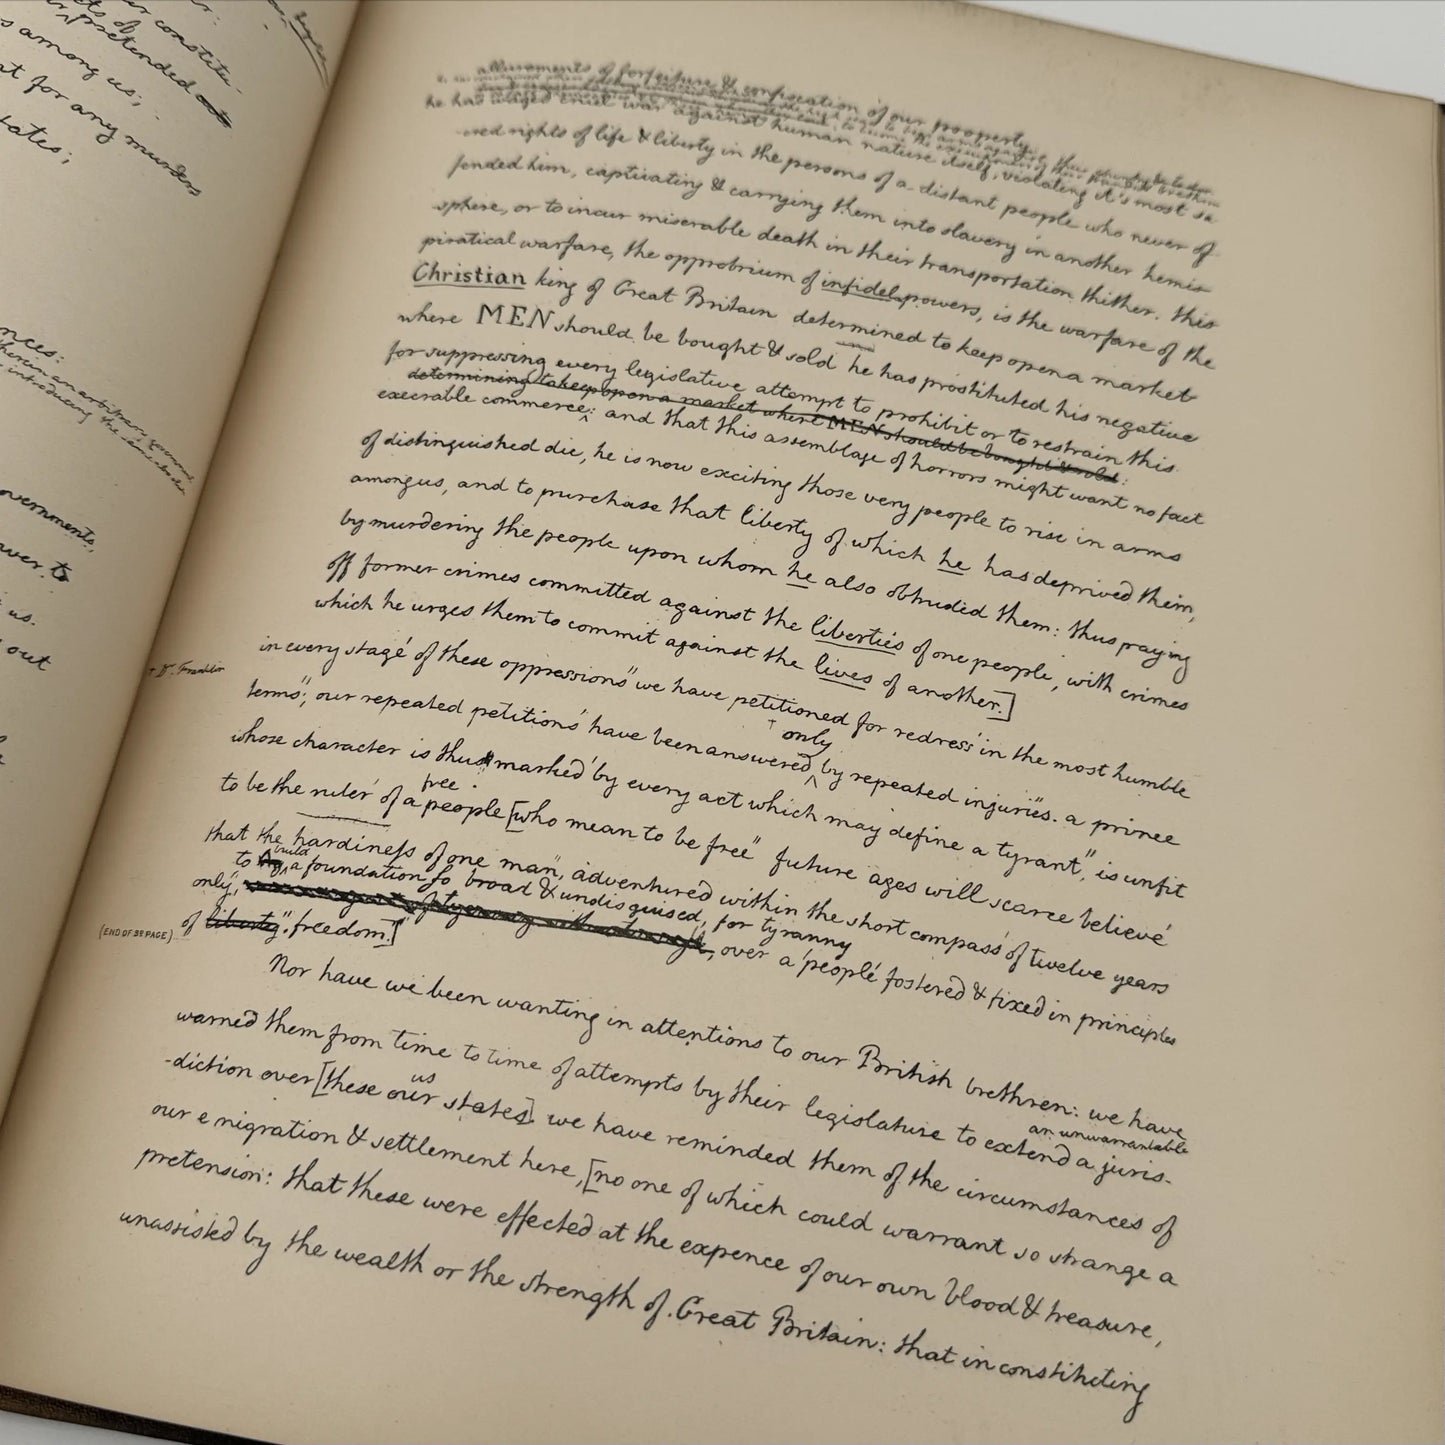 ts of
r constitu-
pretended
s among us;
nt for any murders
tates;
nces:
overnments,
us.
out
allurements of forfeiture & confiscation of our property
he has waged cruel war against human nature itself, violating it's most sa
-cred rights of life & liberty in the persons of a distant people who never of
fended him, captivating & carrying them into slavery in another hemis
sphere, or to incur miserable death in their transportation thither. this
piratical warfare, the opprobrium of infidel powers, is the warfare of the
Christian king of Great Britain determined to keep open a market
where MEN should be bought & sold he has prostituted his negative
for suppressing every legislative attempt to prohibit or to restrain this
determining to keep open a market where MEN should be bought & sold:
execrable commerce: and that this assemblage of horrors might want no fact
of distinguished die, he is now exciting those very people to rise in arms
among us, and to purchase that liberty of which he has deprived them,
by murdering the people upon whom he also obtruded them: thus paying
off former crimes committed against the liberties of one people, with crimes
which he urges them to commit against the lives of another.]
+ Dr. Franklin
in every stage of these oppressions we have petitioned for redress in the most humble
+ only
terms; our repeated petitions have been answered by repeated injuries. a prince
whose character is thus marked by every act which may define a tyrant, is unfit
free
to be the ruler of a people [who mean to be free" future ages will scarce believe
that the hardiness of one man, adventured within the short compass of twelve years
build
to a foundation so broad & undisguised, for tyranny
only, over a people fostered & fixed in principles
(END OF 3D PAGE) of liberty, freedom.]
Nor have we been wanting in attentions to our British brethren: we have
an unwarrantable
warned them from time to time of attempts by their legislature to extend a juris-
us
-diction over [these our states] we have reminded them of the circumstances of
our emigration & settlement here, [no one of which could warrant so strange a
pretension: that these were effected at the expence of our own blood & treasure,
unassisted by the wealth or the strength of Great Britain: that in constituting